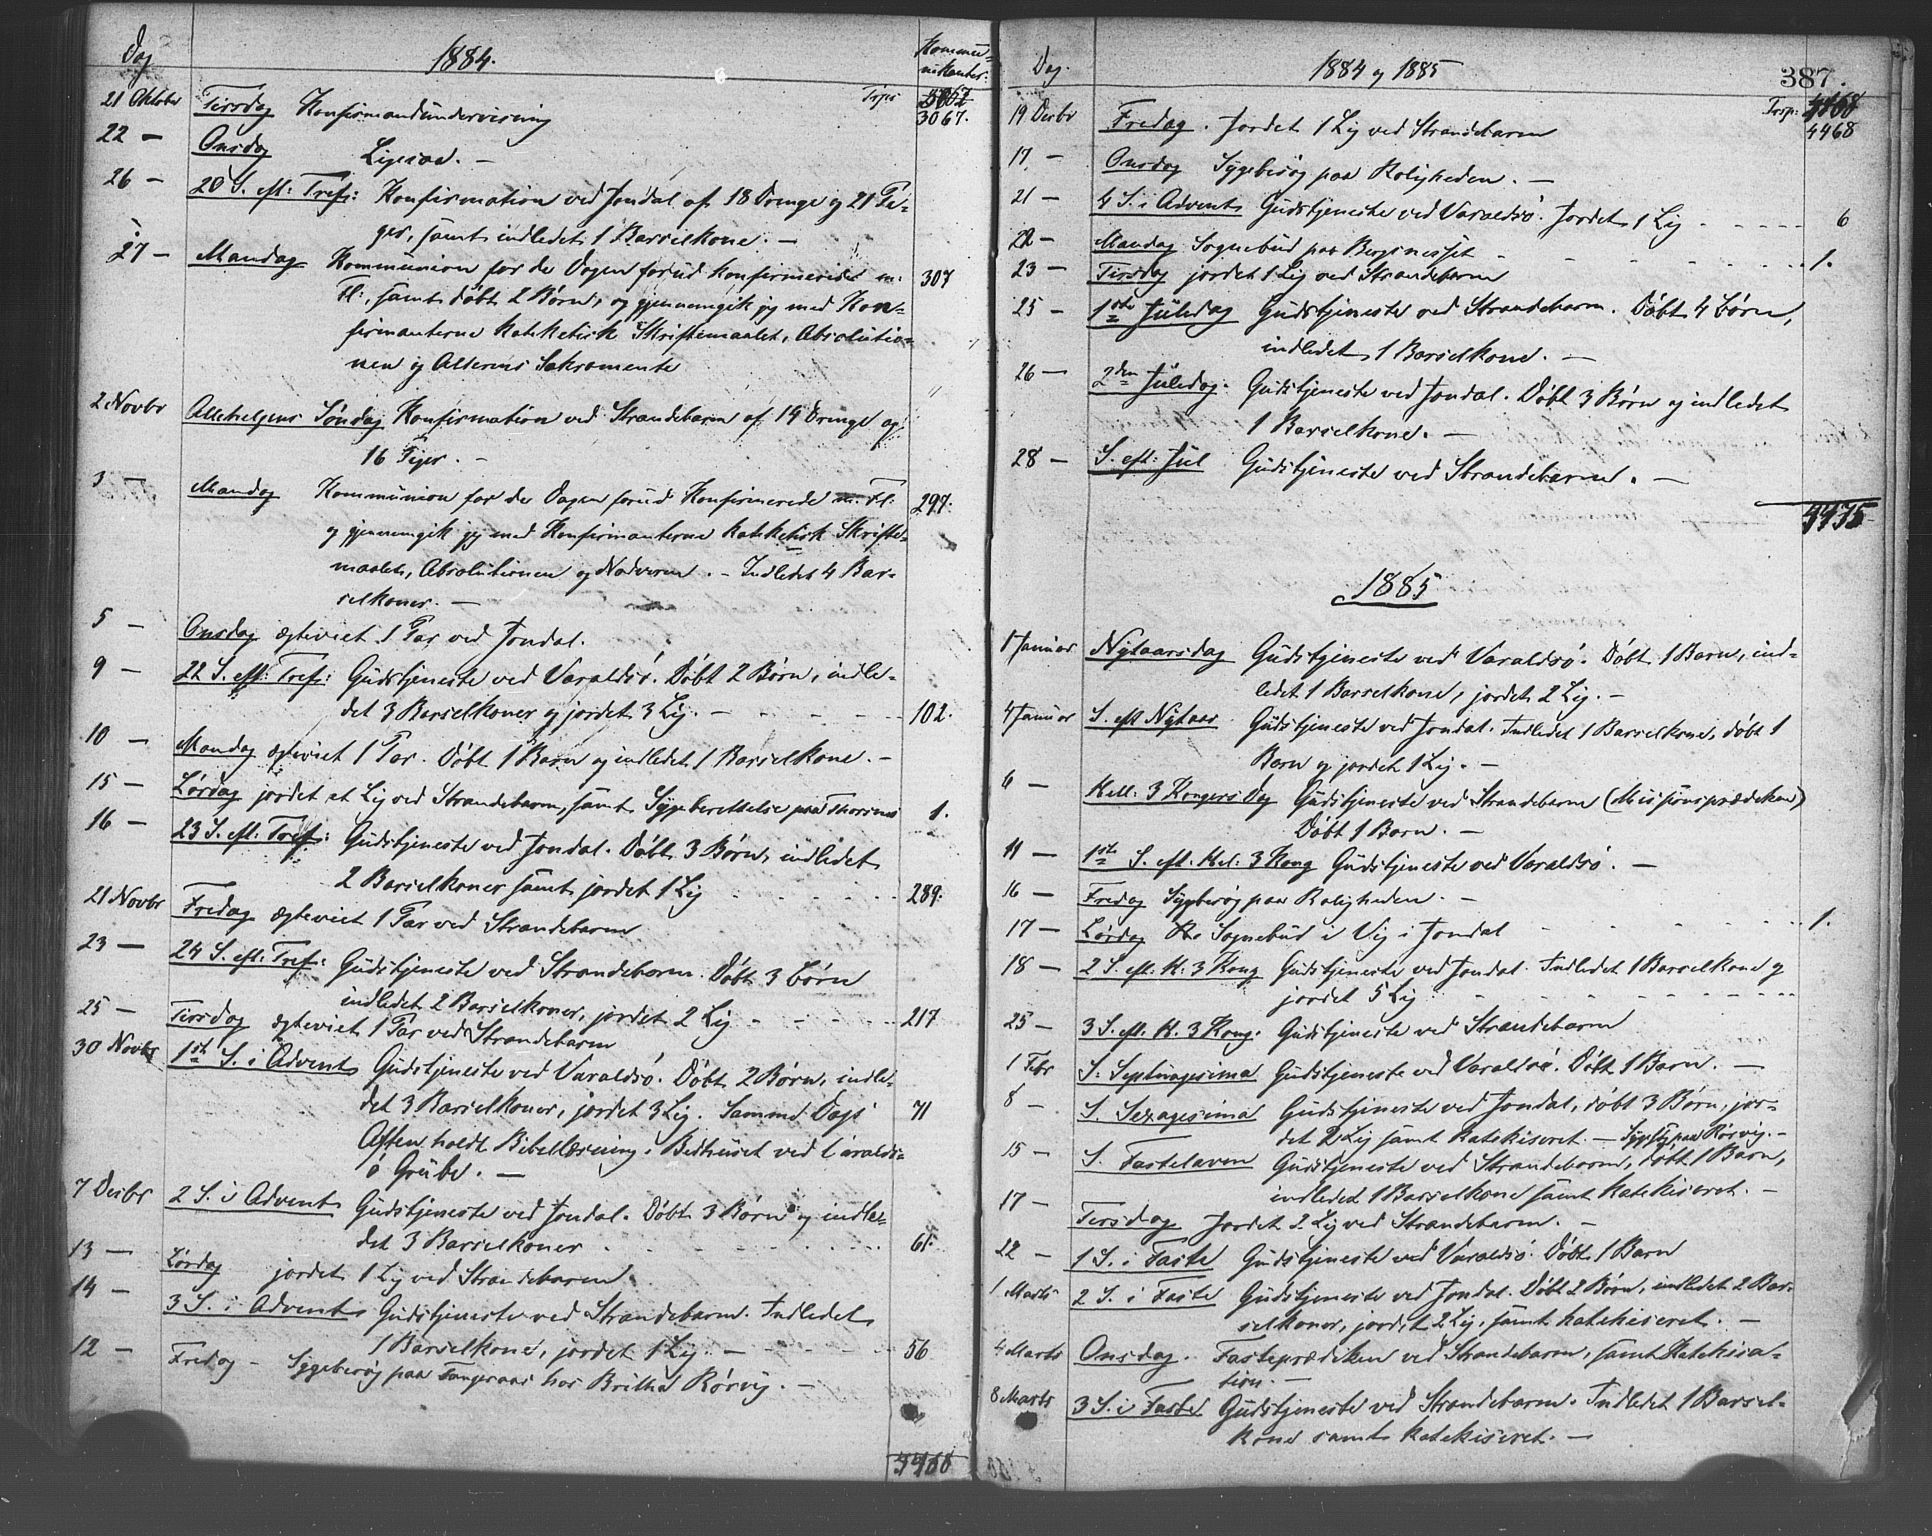 Dag
1884.
Kommu-
nikanter.
21 Oktober Tirsdag Konfirmandundervisning Trsp: 3067.
22 — Onsdag Ligsød. —
26 — 20 S. eft: Tref: Konfirmation ved Jondal af 18 Drenge og 21 Pi-
ger, samt indledet 1 Barselkone. —
27 — Mandag Kommunion for de Dagen forud Konfirmerede m.
Fl., samt døbt 2 Børn, og gjennemgik jeg med Kon- 307
firmanterne katekitisk Skriftemaalet, Absolutio-
nen og Alterens Sakramente
2 Novbr Allehelgens Søndag Konfirmation ved Strandebarm af 19 Drenge og
16 Piger. —
3 — Mandag Kommunion for de Dagen forud Konfirmerede m. Fl. 297.
og gjennemgik jeg med Konfirmanterne katekitisk Skrifte-
maalet, Absolutionen og Nadveren. — Indledet 4 Bar-
selkoner. —
5 — Onsdag ægteviet 1 Par ved Jondal.
9 — 22 S. eft: Tref: Gudstjeneste ved Varaldsø. Døbt 2 Børn, indle-
det 3 Barselkoner og jordet 3 Lig. — 102.
10 — Mandag ægteviet 1 Par. Døbt 1 Barn og indledet 1 Barselkone. —
15 — Lørdag jordet et Lig ved Strandebarm, samt Sygeberettelse paa 1.
16 — 23 S. eft: Tref: Gudstjeneste ved Jondal. Døbt 3 Børn, indledet
2 Barselkoner samt jordet 1 Lig 289.
21 Novbr Fredag ægteviet 1 Par ved Strandebarm
23 — 24 S. eft: Tref: Gudstjeneste ved Strandebarm. Døbt 3 Børn
indledet 2 Barselkoner, jordet 2 Lig 217
25 — Tirsdag ægteviet 1 Par ved Strandebarm
30 Novbr 1ste S. i Advent Gudstjeneste ved Varaldsø. Døbt 2 Børn, indle-
det 3 Barselkoner, jordet 3 Lig. Samme Dags 71
Aften holdt Bibellæsning i Bedhuset ved Varalds-
ø Grube. —
7 Desbr 2 S. i Advent Gudstjeneste ved Jondal. Døbt 3 Børn og indle-
det 3 Barselkoner 61.
13 — Lørdag jordet 1 Lig ved Strandebarm.
14 — 3 S. i Advent Gudstjeneste ved Strandebarm. Indledet
1 Barselkone, jordet 1 Lig 56
12 — Fredag — Sygebesøg paa Tangeraas hos Britha Rørvig. —
4468
Dag.
1884 og 1885
387.
19 Desbr Fredag. Jordet 1 Lig ved Strandebarm Trsp: 4468
17 — Onsdag Sygebesøg paa Roligheden. —
21 — 4 S. i Advent Gudstjeneste ved Varaldsø. Jordet 1 Lig 6
22 — Mandag Sognebud paa 1.
23 — Tirsdag jordet 1 Lig ved Strandebarm
25 — 1ste Juledag Gudstjeneste ved Strandebarm. Døbt 4 Børn,
indledet 1 Barselkone. —
26 — 2den Juledag. Gudstjeneste ved Jondal. Døbt 3 Børn og indledet
1 Barselkone. —
28 — S. eft: Jul Gudstjeneste ved Strandebarm. —
4475
1885
1 Januar Nytaarsdag Gudstjeneste ved Varaldsø. Døbt 1 Barn, ind-
ledet 1 Barselkone, jordet 2 Lig. —
4 Januar S. eft Nytaar Gudstjeneste ved Jondal. Indledet 1 Barselkone, døbt 1
Barn og jordet 1 Lig. —
6 — Hell: 3 Kongers Dag Gudstjeneste ved Strandebarm (Missionsprædiken)
Døbt 1 Barn. —
11 — 1ste S. eft. Hel: 3 Kong Gudstjeneste ved Varaldsø. —
16 — Fredag Sygbesøg paa Roligheden. —
17 — Lørdag Sognebud i Vig i Jondal 1.
18 — 2 S. eft: H. 3 Kong Gudstjeneste ved Jondal. Indledet 1 Barselkone og
jordet 5 Lig
25 — 3 S. eft. H. 3 Kong. Gudstjeneste ved Strandebarm
1 Febr S. Septuagesima Gudstjeneste ved Varaldsø. Døbt 1 Barn. —
8 — S. Sexagesima Gudstjeneste ved Jondal, døbt 3 Børn, jor-
det 2 Lig samt katekiseret. — paa Rørvig. —
15 — S. Fastelaven Gudstjeneste ved Strandebarm, døbt 1 Barn,
indledet 1 Barselkone samt katekiseret. —
17 — Tirsdag Jordet 2 Lig ved Strandebarm. —
22 — 1 S. i Faste Gudstjeneste ved Varaldsø. Døbt 1 Barn
1 Marts 2 S. i Faste Gudstjeneste ved Jondal. Døbt 2 Børn, indledet 2 Bar-
selkoner, jordet 2 Lig, samt katekiseret. —
4 Marts Onsdag. Fasteprædiken ved Strandebarm, samt Katekisa-
tion. —
8 Marts 3 S. i Faste Gudstjeneste ved Strandebarm. Indledet 1 Barsel-
kone samt katekiseret. —